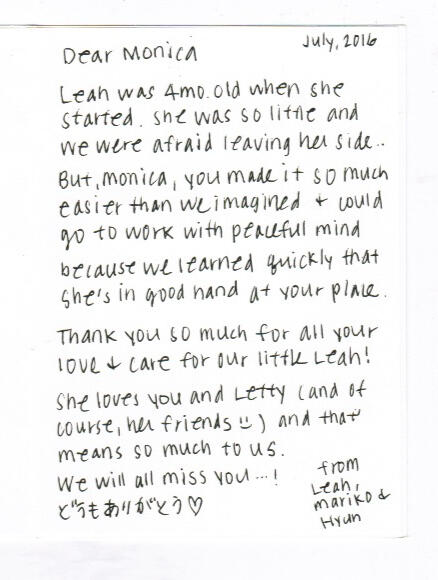 July, 2016
Dear Monica
Leah was 4mo. old when she
started. She was so little and
we were afraid leaving her side..
But, Monica, you made it so much
easier than we imagined & could
go to work with peaceful mind
because we learned quickly that
she's in good hand at your place.
Thank you so much for all your
love & care for our little Leah!
She loves you and Letty (and of
course, her friends :)) and that
means so much to us.
We will all miss you...!
どうもありがとう♡
from
Leah,
mariko &
Hyun